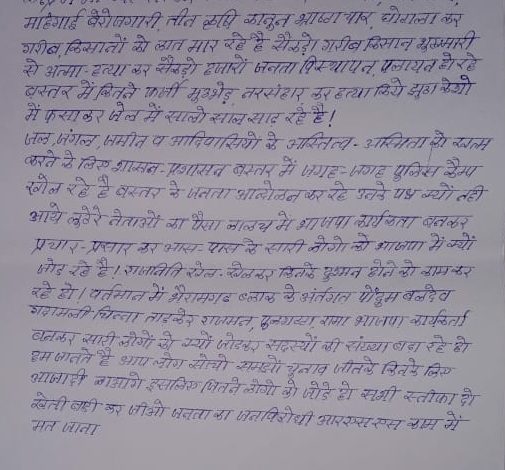 माहंगाई बेरोजगारी, तीन कृषि कानून भ्रष्टाचार, घोटाला कर
गरीब, किसानों को लात मार रहे है सैकड़ो गरीब किसान भुखमारी
से आत्मा-हत्या कर सैकड़ो हजारों जनता विस्थापन, पलायन हो रहे
बस्तर में कितने फर्जी मुठभेड़, नरसंहार कर हत्या किये झूठा केशो
में फसाकर जेल में सालो साल सड़ रहे हैं!
जल, जंगल, जमीन व आदिवासियों के अस्तित्व-अस्मिता को खत्म
करने के लिए शासन-प्रशासन बस्तर में जगह-जगह पुलिस कैम्प
खोल रहे है बस्तर के जनता आन्दोलन कर रहे उनके पक्ष क्यों नही
आये लुटेरे नेताओं का पैसा लालच में भाजपा कार्यकर्ता बनकर
प्रचार-प्रसार कर आस-पास के सारी लोगो को भाजपा में क्यों
जोड़ रहे है! राजनिति खेल-खेलकर कितने दुश्मन होने को काम कर
रहे हो! वर्तमान में भैरामगढ़ ब्लाक के अंर्तगत पोंदुम बलदेव
चिन्ना राजमन, रामा भाजपा कार्यकर्ता
बनकर सारी लोगों को क्यों जोड़कर सदस्यों की संख्या बढ़ा रहे हो
हम जानते है आप लोग सोचो समझो चुनाव जीतके किनके लिए
आजादी लाओगे इसलिए जितने लोगो को जोड़े हो सभी स्तीफा दो
खेती बाड़ी कर जीओ जनता का जनविरोधी आरएसएस काम में
मत जाना